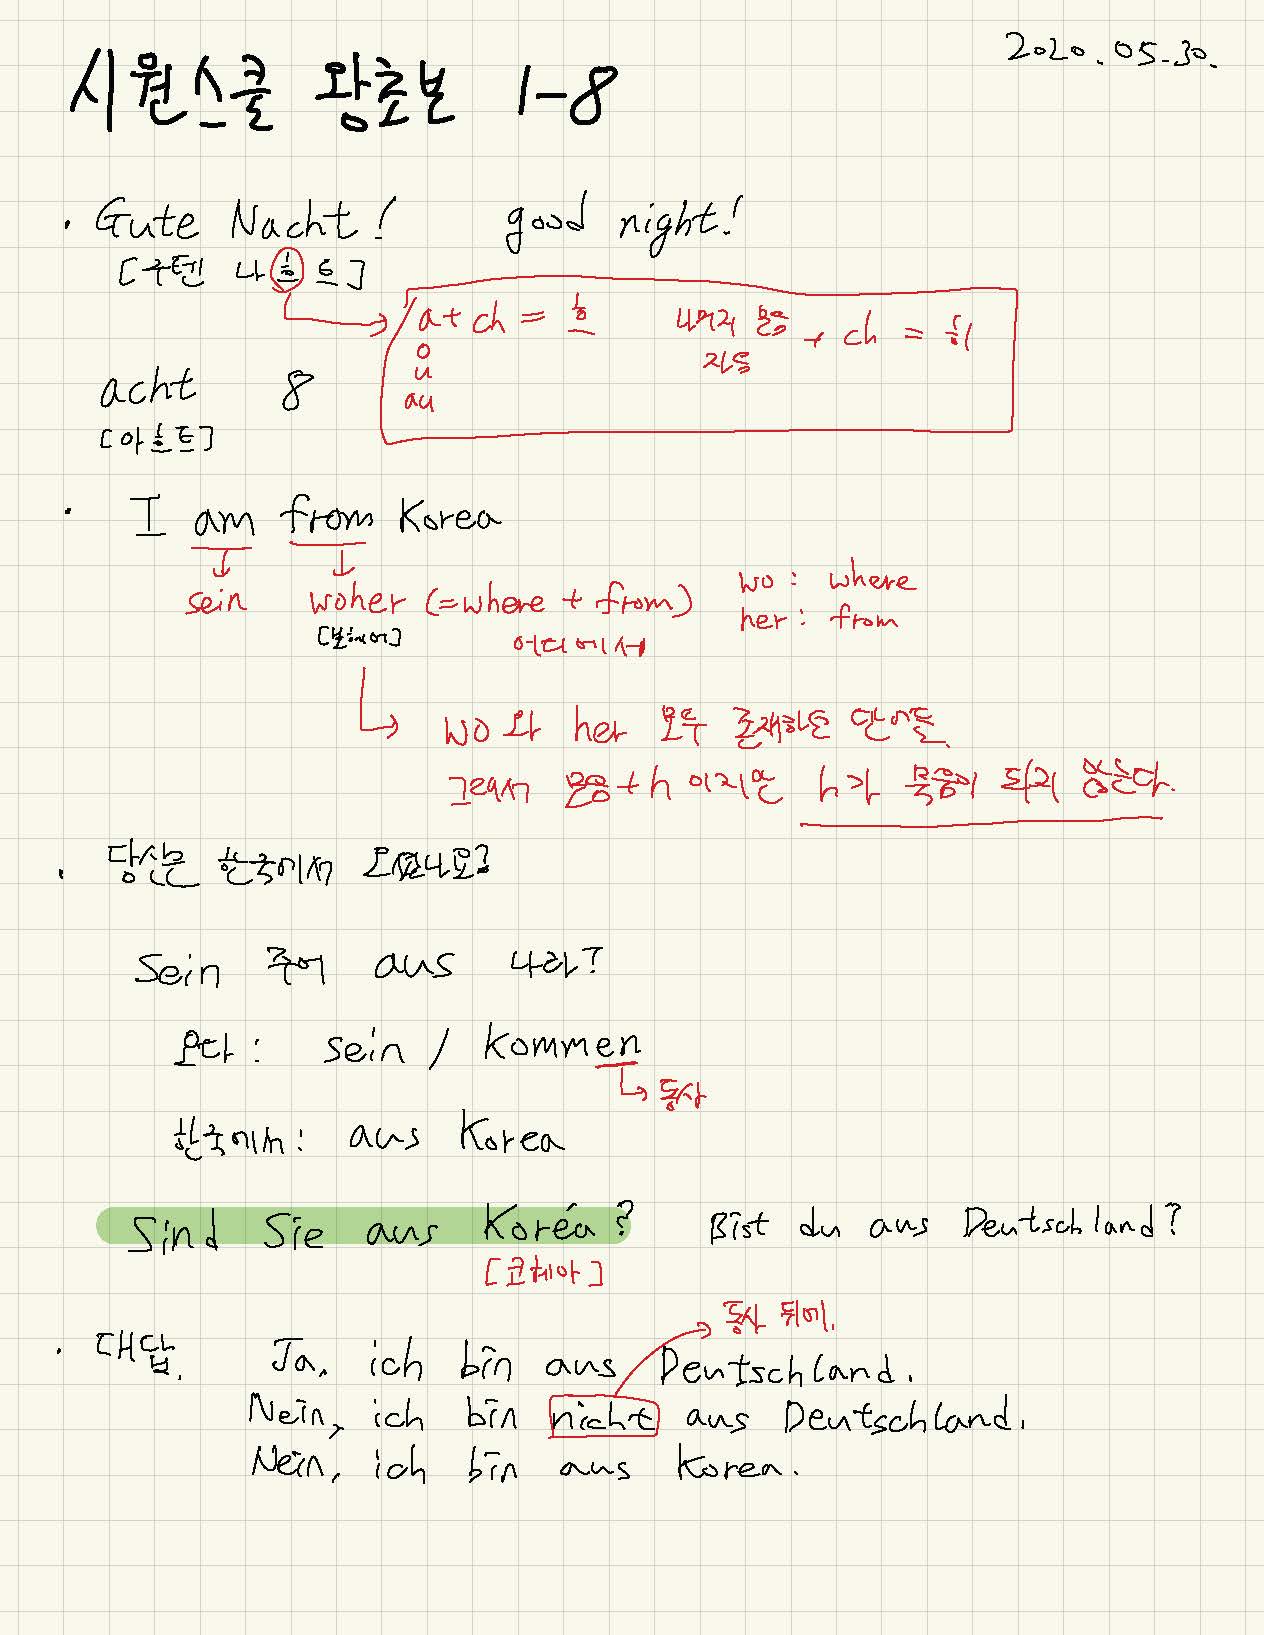 2020.05.30.
시원스쿨 왕초보 1-8
· Gute Nacht! good night!
[구텐 나흐트]
a + ch = 흐 나머지 모음 + ch = 히
o 자음
u
au
acht 8
[아흐트]
· I am from Korea
sein woher (=where + from) wo : where
[보헤어] 어디에서 her : from
wo 와 her 모두 존재하는 단어들
그래서 모음+h 이지만 h가 묵음이 되지 않는다.
· 당신은 한국에서 오셨나요?
Sein 주어 aus 나라?
오다 : sein / kommen
동사
한국에서 : aus Korea
Sind Sie aus Koréa? Bist du aus Deutschland?
[코레아]
동사 뒤에.
· 대답. Ja, ich bin aus Deutschland.
Nein, ich bin nicht aus Deutschland.
Nein, ich bin aus Korea.